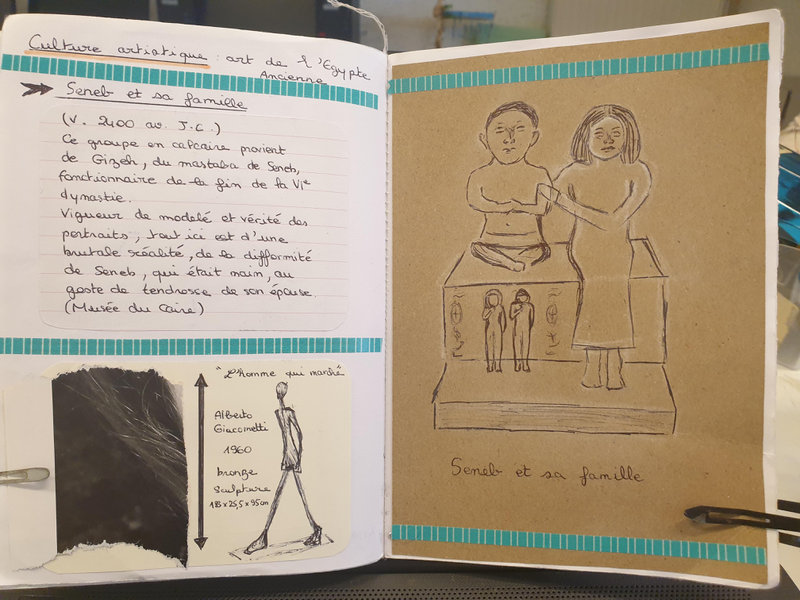 Culture artistique : art de l'Egypte
Ancienne
Seneb et sa famille
(V. 2400 av. J.C.)
Ce groupe en calcaire provient
de Gizeh, du mastaba de Seneb,
fonctionnaire de la fin de la VIe
dynastie.
Vigueur de modelé et vérité des
portraits, tout ici est d'une
brutale réalité, de la difformité
de Seneb, qui était nain, au
geste de tendresse de son épouse.
(Musée du Caire)
"L'Homme qui marche"
Alberto
Giacometti
1960
bronze
Sculpture
183 x 25,5 x 95cm
Seneb et sa famille